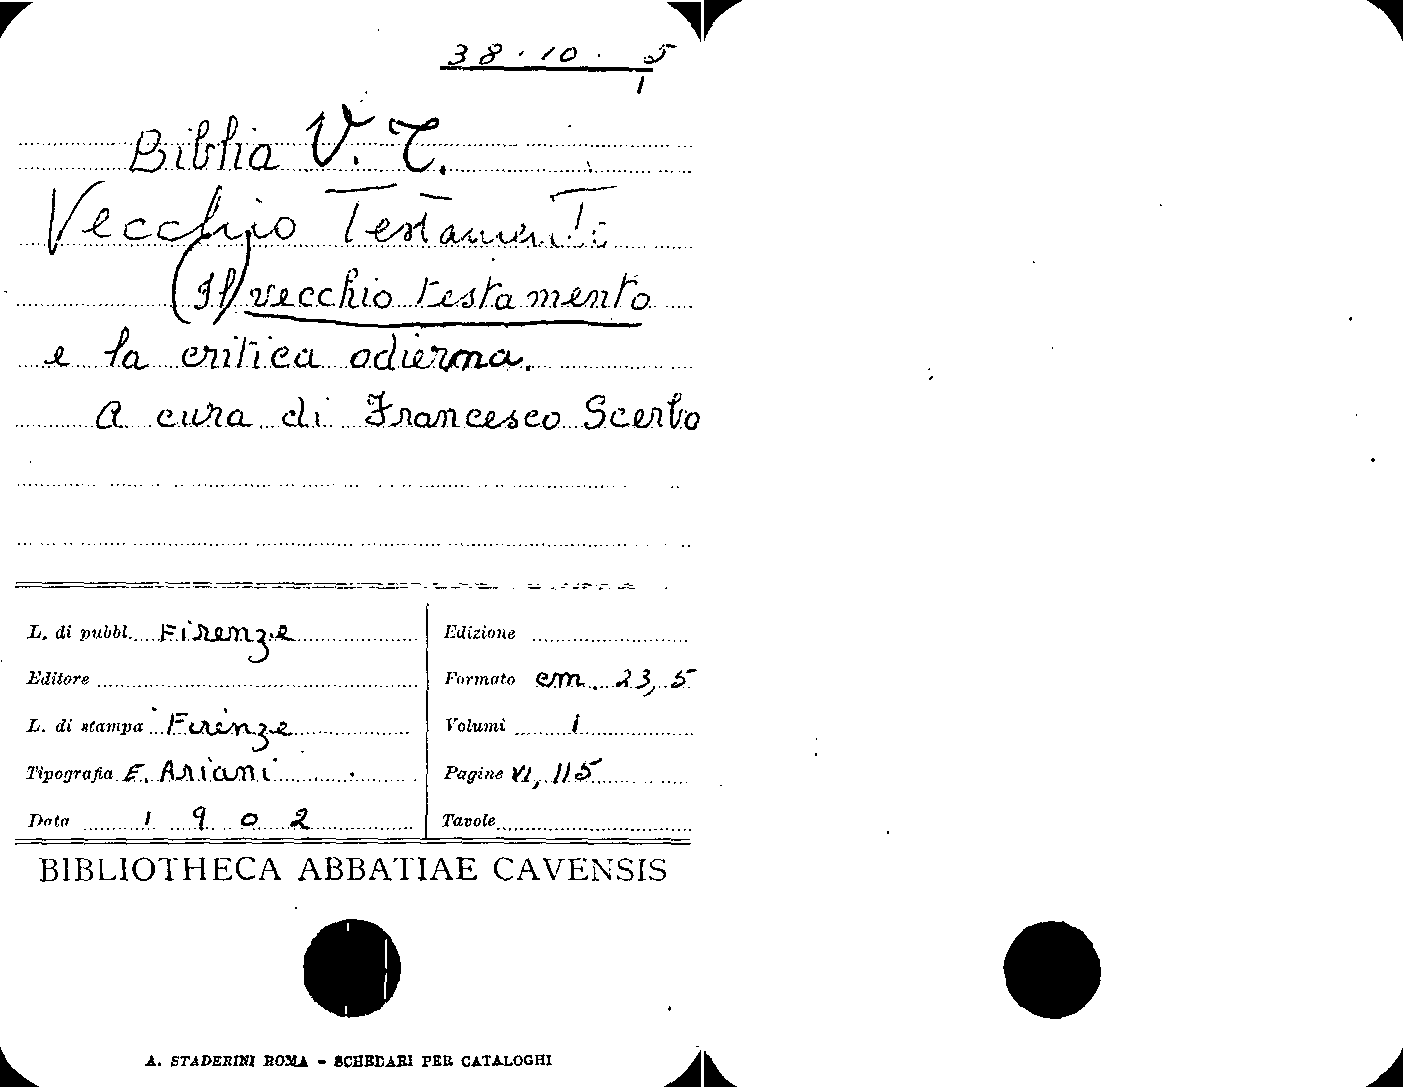 38·10·5
1
Biblia V. T.
Vecchio Testamento
(Il) vecchio testamento
e la critica odierna.
A cura di Francesco Scerbo
L. di pubbl. Firenze
Editore
L. di stampa Firenze
Tipografia E. Ariani
Data 1902
Edizione
Formato cm. 23,5
Volumi 1
Pagine VI, 115
Tavole
BIBLIOTHECA ABBATIAE CAVENSIS
A. STADERINI ROMA - SCHEDARI PER CATALOGHI